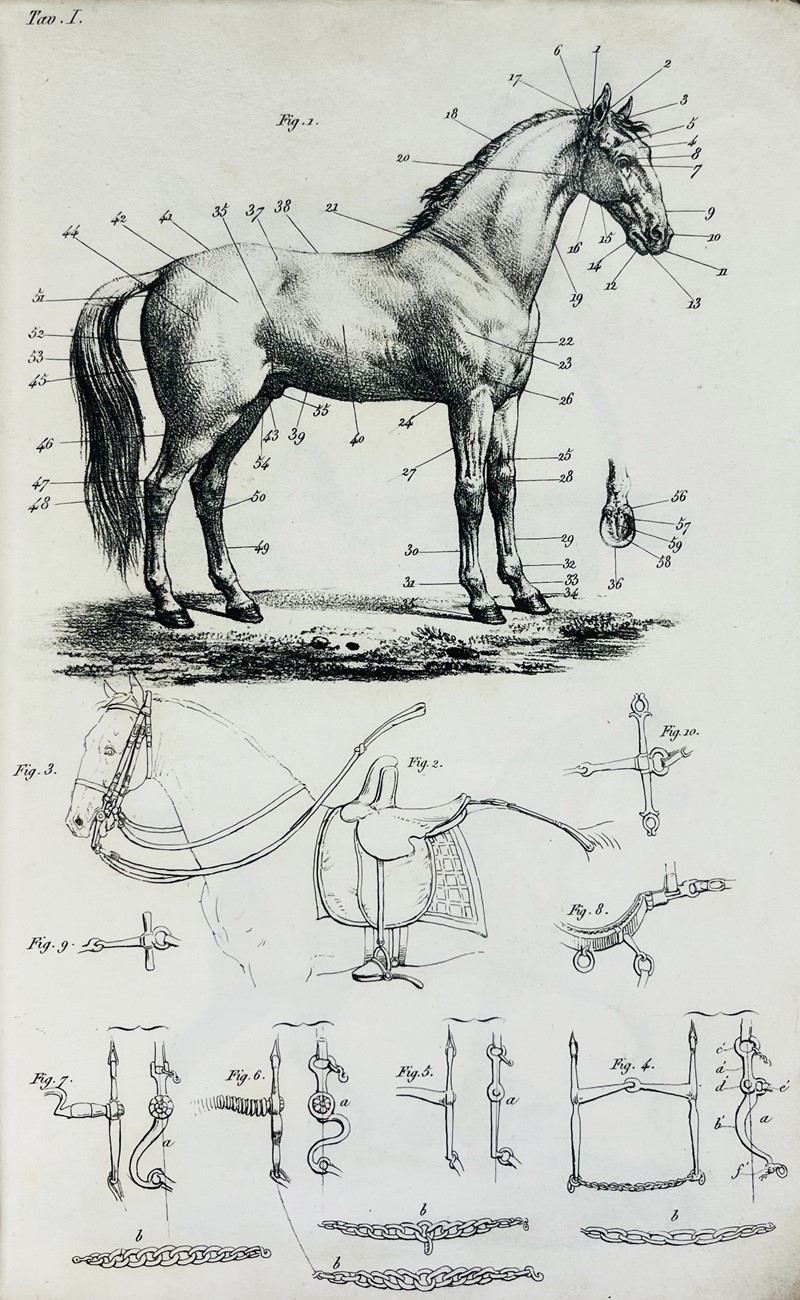 Tav. I.
Fig. 1.
6 1 2
17 3
18 5
4
20 8
7
9
10
16 15
14 11
12
19 13
44 42 41 35 37 38 21
51
52 22
53 23
45 26
55
24
46 43 39 40
54
27 25
47 28
48 50
56
57
59
58
49 30 29
32
31 33
34
36
Fig. 3. Fig. 2. Fig. 10.
Fig. 9. Fig. 8.
Fig. 7. Fig. 6. Fig. 5. Fig. 4.
c'
a'
d' e'
a a a a
b'
f'
b b b
b